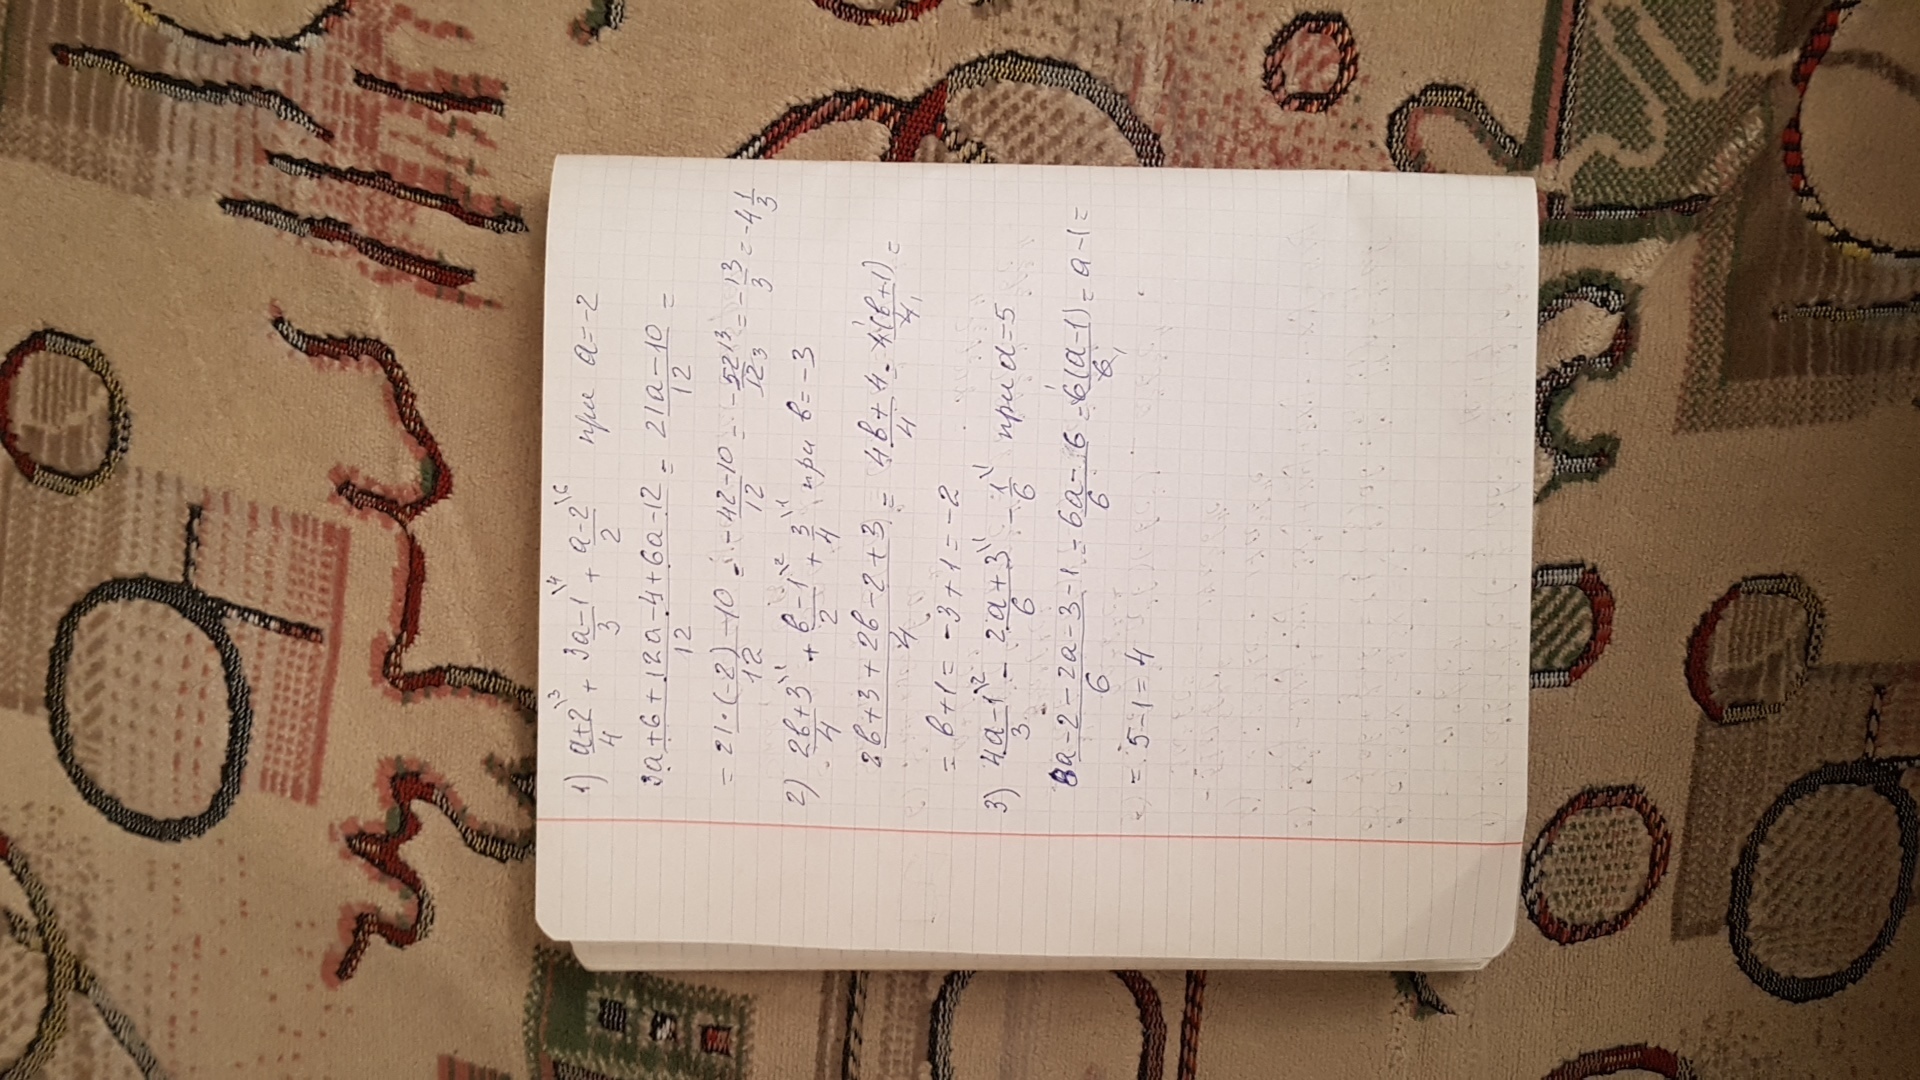 1) (a+2)/4 \3 + (3a-1)/3 \4 + (a-2)/2 \6 при a=-2
(3a+6+12a-4+6a-12)/12 = (21a-10)/12 =
= (21·(-2)-10)/12 = (-42-10)/12 = -52 13/12 3 = -13/3 = -4 1/3
2) (2в+3)/4 \1 + (в-1)/2 \2 + 3/4 \1 при в=-3
(2в+3+2в-2+3)/4 = (4в+4)/4 = 4(в+1)/4 =
= в+1 = -3+1 = -2
3) (4a-1)/3 \2 - (2a+3)/6 \1 - 1/6 \1 при a=5
(8a-2-2a-3-1)/6 = (6a-6)/6 = 6(a-1)/6 = a-1 =
= 5-1=4